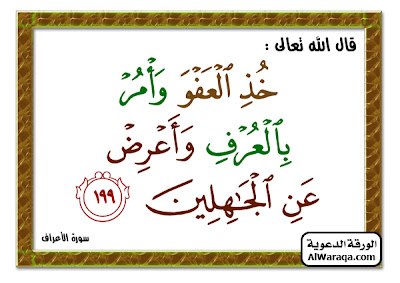 قال الله تعالى :
خُذِ ٱلْعَفْوَ وَأْمُرْ
بِٱلْعُرْفِ وَأَعْرِضْ
عَنِ ٱلْجَٰهِلِينَ ١٩٩
سورة الأعراف
الورقة الدعوية
AlWaraqa.com